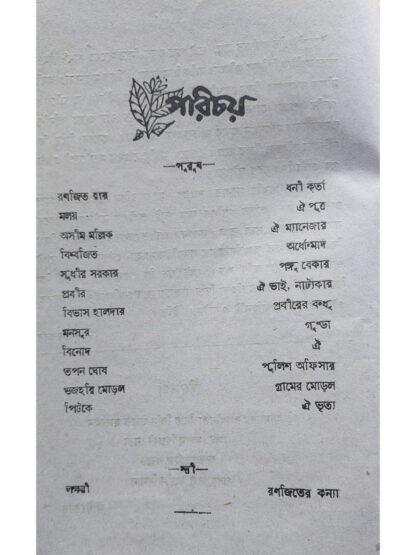 পরিচয়
—পুরুষ—
রণজিত রায় ধনী কর্তা
মলয় ঐ পুত্র
অসীম মল্লিক ঐ ম্যানেজার
বিশ্বজিত অর্ধোন্মাদ
সুধীর সরকার পঙ্গু বেকার
প্রবীর ঐ ভাই, নাট্যকার
বিভাস হালদার প্রবীরের বন্ধু
মনসুর গুন্ডা
বিনোদ ঐ
তপন ঘোষ পুলিশ অফিসার
ভজহরি মোড়ল গ্রামের মোড়ল
পিটকে ঐ ভৃত্য
—স্ত্রী—
লক্ষ্মী রণজিতের কন্যা